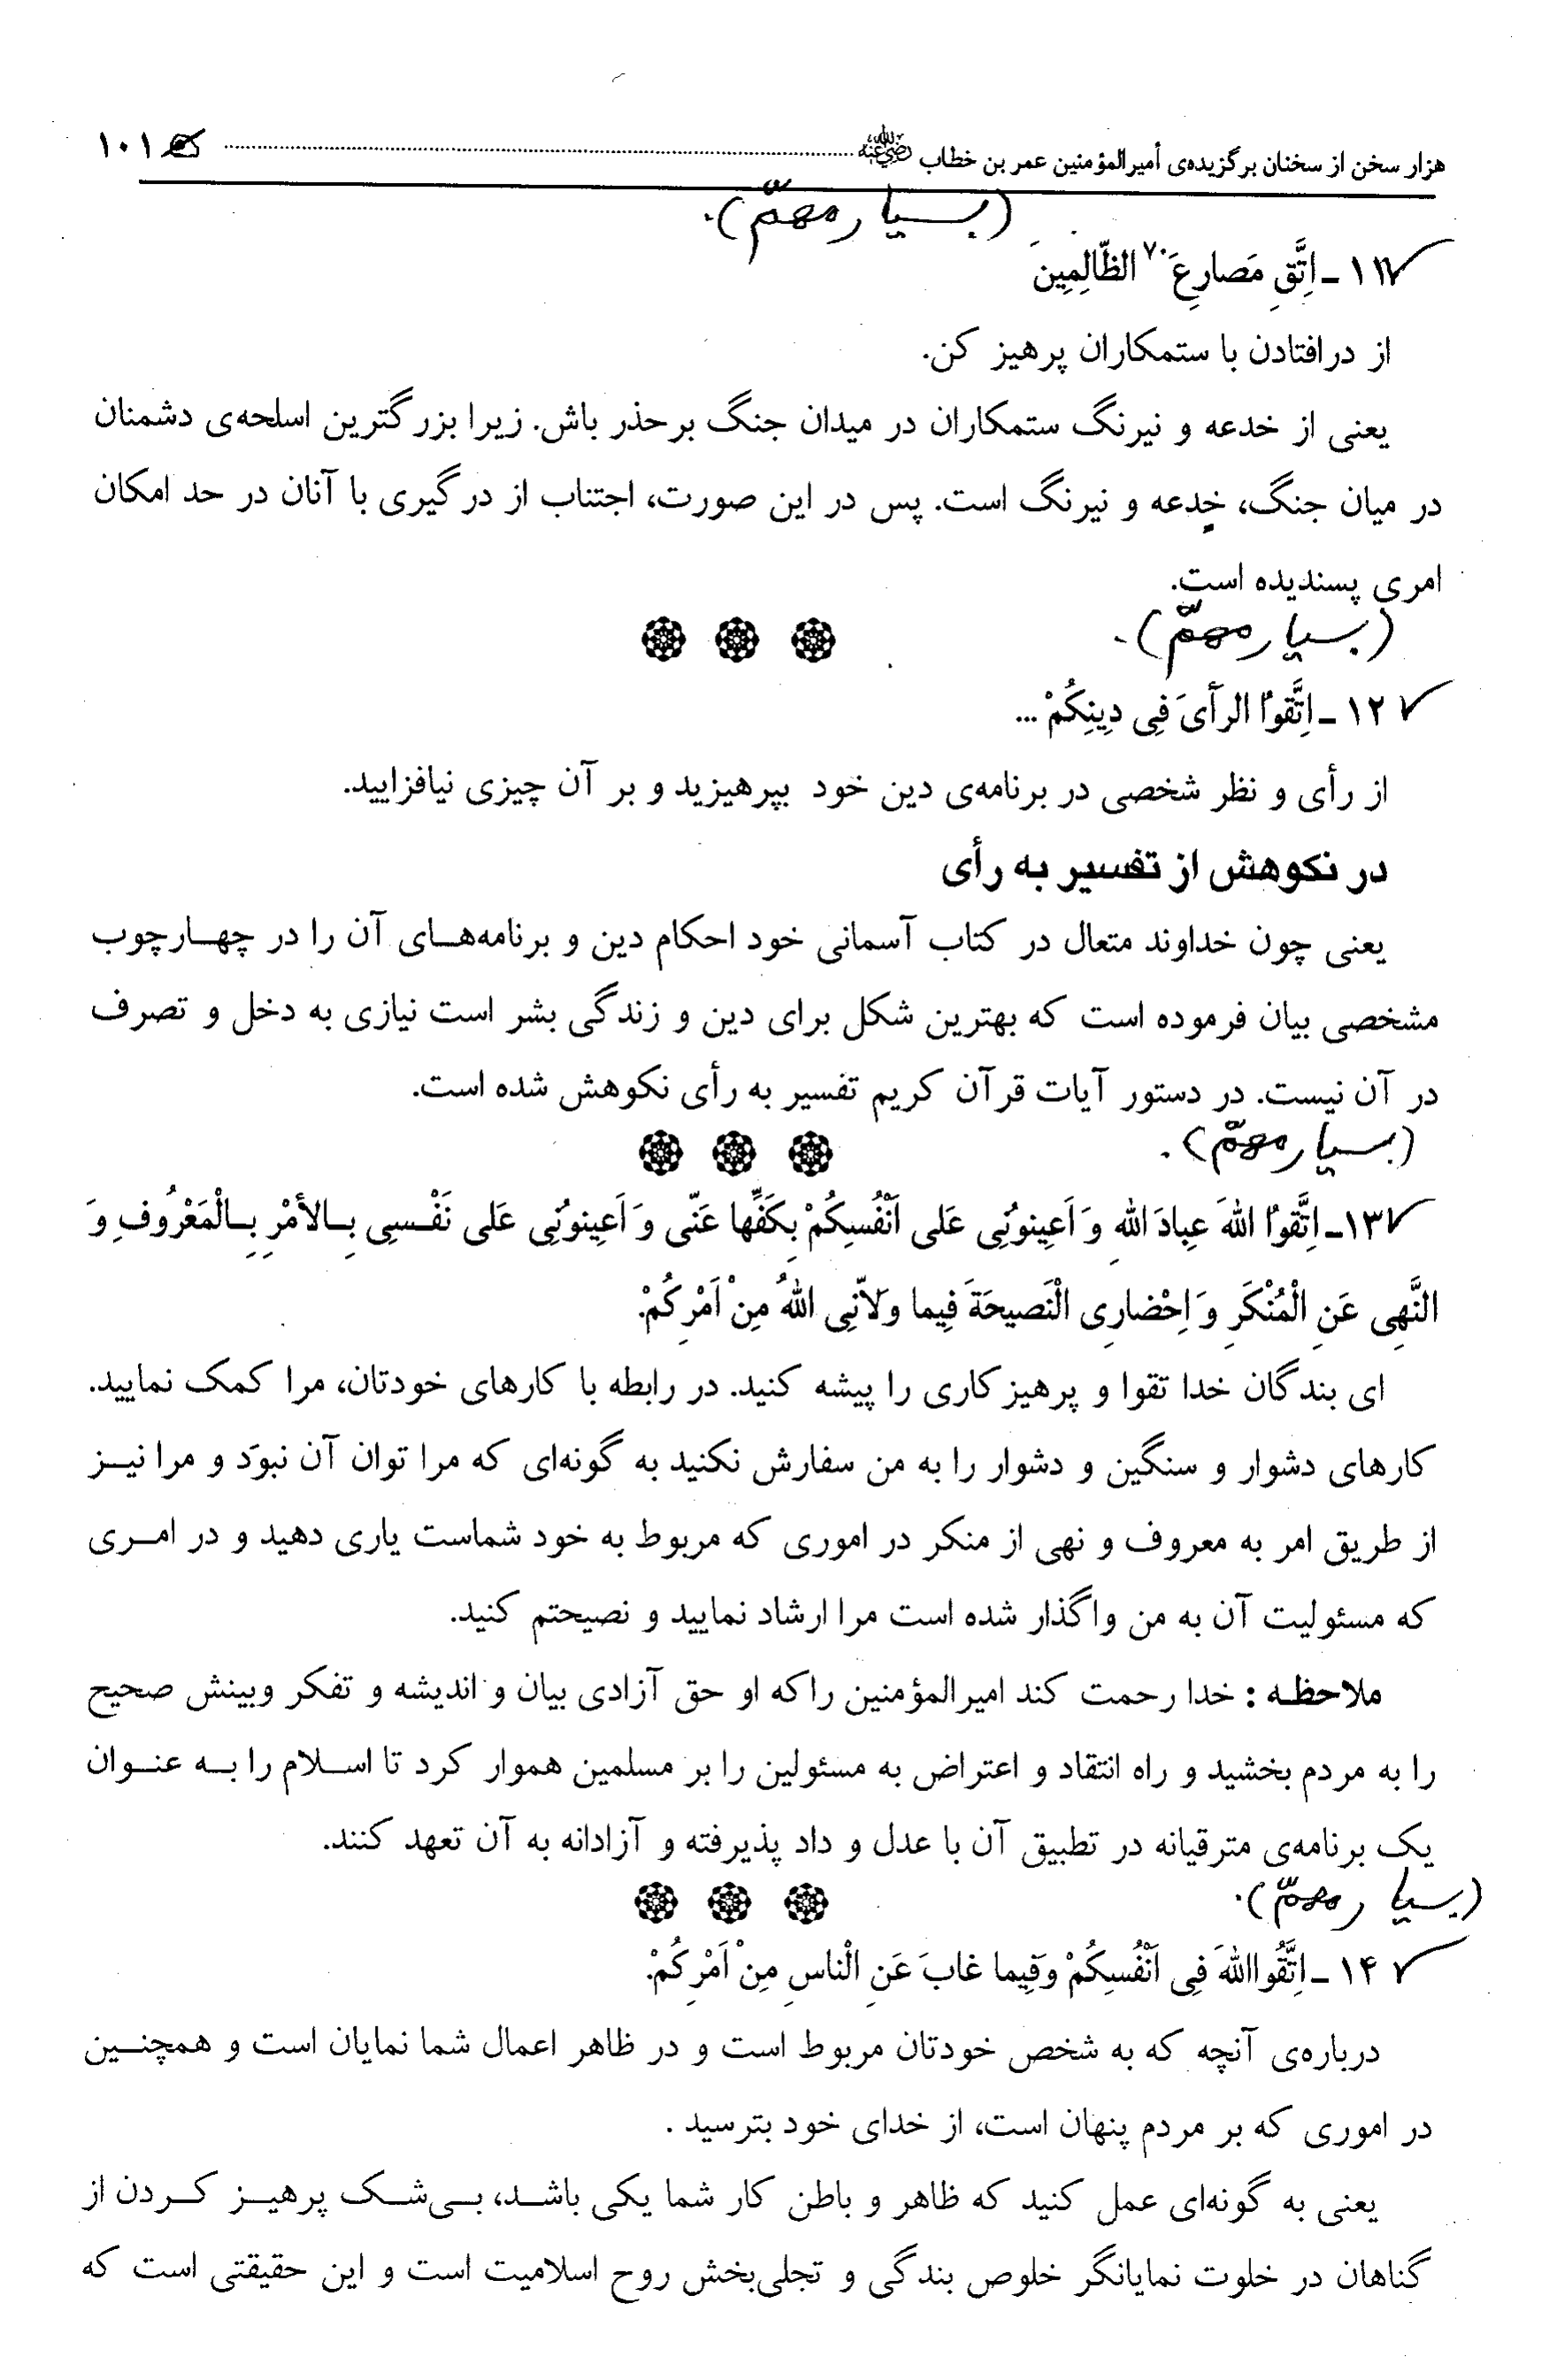 هزار سخن از سخنان برگزیده‌ی أمیرالمؤمنین عمر بن خطاب رضی الله عنه ۱۰۱
(بسیار مهمّ).
۱۱ ـ اِتَّقِ مَصارِعَ۷۰ الظّالِمِینَ
از درافتادن با ستمکاران پرهیز کن.
یعنی از خدعه و نیرنگ ستمکاران در میدان جنگ برحذر باش. زیرا بزرگترین اسلحه‌ی دشمنان
در میان جنگ، خدعه و نیرنگ است. پس در این صورت، اجتناب از درگیری با آنان در حد امکان
امری پسندیده است.
(بسیار مهمّ).
۱۲ ـ اِتَّقوُا الرأیَ فِی دِینِکُمْ ...
از رأی و نظر شخصی در برنامه‌ی دین خود بپرهیزید و بر آن چیزی نیافزایید.
در نکوهش از تفسیر به رأی
یعنی چون خداوند متعال در کتاب آسمانی خود احکام دین و برنامه‌هـای آن را در چهـارچوب
مشخصی بیان فرموده است که بهترین شکل برای دین و زندگی بشر است نیازی به دخل و تصرف
در آن نیست. در دستور آیات قرآن کریم تفسیر به رأی نکوهش شده است.
(بسیار مهمّ).
۱۳ـ اِتَّقوُا اللهَ عِبادَ اللهِ وَ اَعِینوُنِی عَلی اَنْفُسِکُمْ بِکَفِّها عَنّی وَ اَعِینوُنِی عَلی نَفْـسِی بِـالأمْرِ بِـالْمَعْرُوفِ وَ
النَّهِی عَنِ الْمُنْکَرِ وَ اِحْضارِی الْنَصیحَةَ فِیما وَلاّنِی اللهُ مِنْ اَمْرِکُمْ.
ای بندگان خدا تقوا و پرهیزکاری را پیشه کنید. در رابطه با کارهای خودتان، مرا کمک نمایید.
کارهای دشوار و سنگین و دشوار را به من سفارش نکنید به گونه‌ای که مرا توان آن نبوَد و مرا نیـز
از طریق امر به معروف و نهی از منکر در اموری که مربوط به خود شماست یاری دهید و در امـری
که مسئولیت آن به من واگذار شده است مرا ارشاد نمایید و نصیحتم کنید.
ملاحظه : خدا رحمت کند امیرالمؤمنین راکه او حق آزادی بیان و اندیشه و تفکر وبینش صحیح
را به مردم بخشید و راه انتقاد و اعتراض به مسئولین را بر مسلمین هموار کرد تا اسـلام را بـه عنـوان
یک برنامه‌ی مترقیانه در تطبیق آن با عدل و داد پذیرفته و آزادانه به آن تعهد کنند.
(بسیار مهمّ).
۱۴ ـ اِتَّقُوااللهَ فِی اَنْفُسِکُمْ وَفِیما غابَ عَنِ الْناسِ مِنْ اَمْرِکُمْ.
درباره‌ی آنچه که به شخص خودتان مربوط است و در ظاهر اعمال شما نمایان است و همچنـین
در اموری که بر مردم پنهان است، از خدای خود بترسید .
یعنی به گونه‌ای عمل کنید که ظاهر و باطن کار شما یکی باشـد، بـی‌شـک پرهیـز کـردن از
گناهان در خلوت نمایانگر خلوص بندگی و تجلی‌بخش روح اسلامیت است و این حقیقتی است که